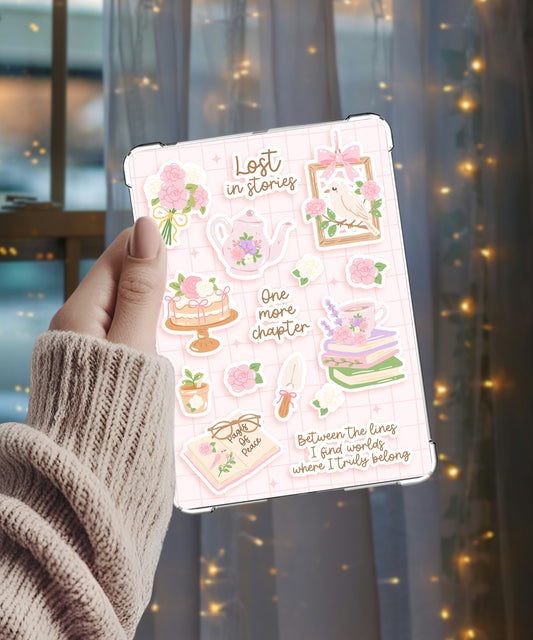 Lost
in stories
One
more
chapter
Pages
Of
Peace
Between the lines
I find worlds
where I truly belong